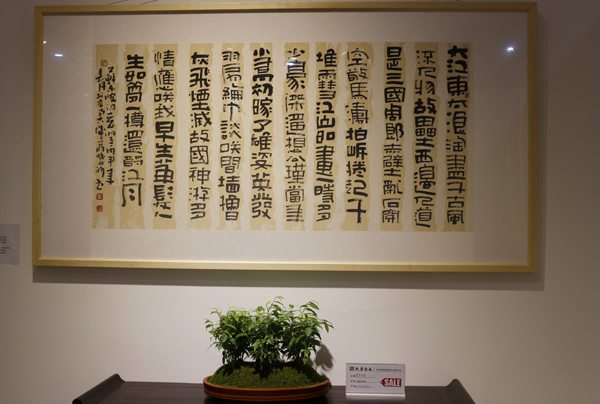 大江東去浪淘盡千古風
流人物故壘西邊人道
是三國周郎赤壁亂石穿
空驚濤拍岸捲起千
堆雪江山如畫一時多
少豪傑遙想公瑾當年
小喬初嫁了雄姿英發
羽扇綸巾談笑間檣櫓
灰飛煙滅故國神遊多
情應笑我早生華髮人
生如夢一樽還酹江月
SALE